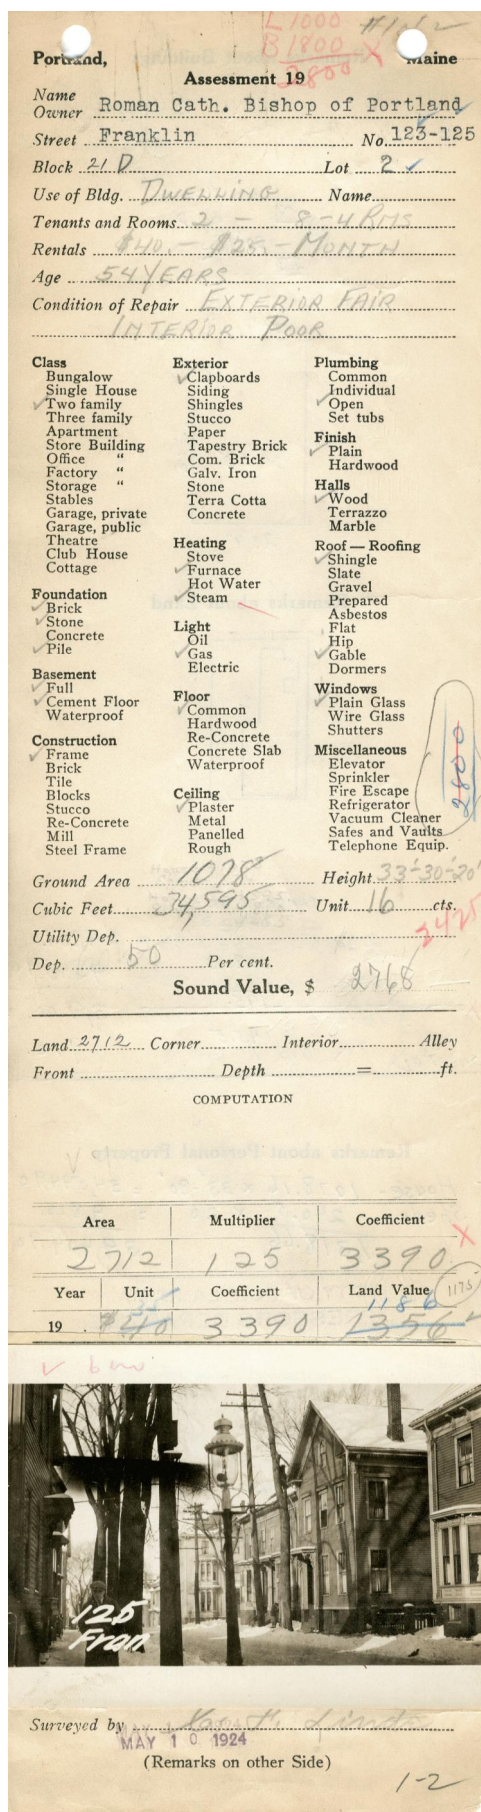 L 1000 #1 of 2
B 1800 X
2800
Portland, Maine
Assessment 19
Name
Owner Roman Cath. Bishop of Portland
Street Franklin No. 123-125
Block 21 D Lot 2
Use of Bldg. DWELLING Name
Tenants and Rooms 2 - 8-4 RMS
Rentals $40.- $25.- MONTH
Age 54 YEARS
Condition of Repair EXTERIOR FAIR
INTERIOR POOR
Class
Bungalow
Single House
✓Two family
Three family
Apartment
Store Building
Office "
Factory "
Storage "
Stables
Garage, private
Garage, public
Theatre
Club House
Cottage
Foundation
✓Brick
✓Stone
Concrete
✓Pile
Basement
✓Full
✓Cement Floor
Waterproof
Construction
✓Frame
Brick
Tile
Blocks
Stucco
Re-Concrete
Mill
Steel Frame
Exterior
✓Clapboards
Siding
Shingles
Stucco
Paper
Tapestry Brick
Com. Brick
Galv. Iron
Stone
Terra Cotta
Concrete
Heating
Stove
✓Furnace
Hot Water
✓Steam
Light
Oil
✓Gas
Electric
Floor
✓Common
Hardwood
Re-Concrete
Concrete Slab
Waterproof
Ceiling
✓Plaster
Metal
Panelled
Rough
Plumbing
Common
Individual
✓Open
Set tubs
Finish
✓Plain
Hardwood
Halls
✓Wood
Terrazzo
Marble
Roof — Roofing
✓Shingle
Slate
Gravel
Prepared
Asbestos
Flat
Hip
✓Gable
Dormers
Windows
✓Plain Glass
Wire Glass
Shutters
Miscellaneous
Elevator
Sprinkler
Fire Escape
Refrigerator
Vacuum Cleaner
Safes and Vaults
Telephone Equip.
2800
Ground Area 1078 Height 33'-30'-20'
Cubic Feet 34,595 Unit 16 cts.
2425
Utility Dep.
Dep. 50 Per cent.
Sound Value, $ 2768
Land 2712 Corner Interior Alley
Front Depth = ft.
COMPUTATION
Area Multiplier Coefficient
2712 125 3390 X
Year Unit Coefficient Land Value 1175
35 1186
19 . $40 3390 1356
125
Fran
Surveyed by
MAY 10 1924
(Remarks on other Side)
1-2